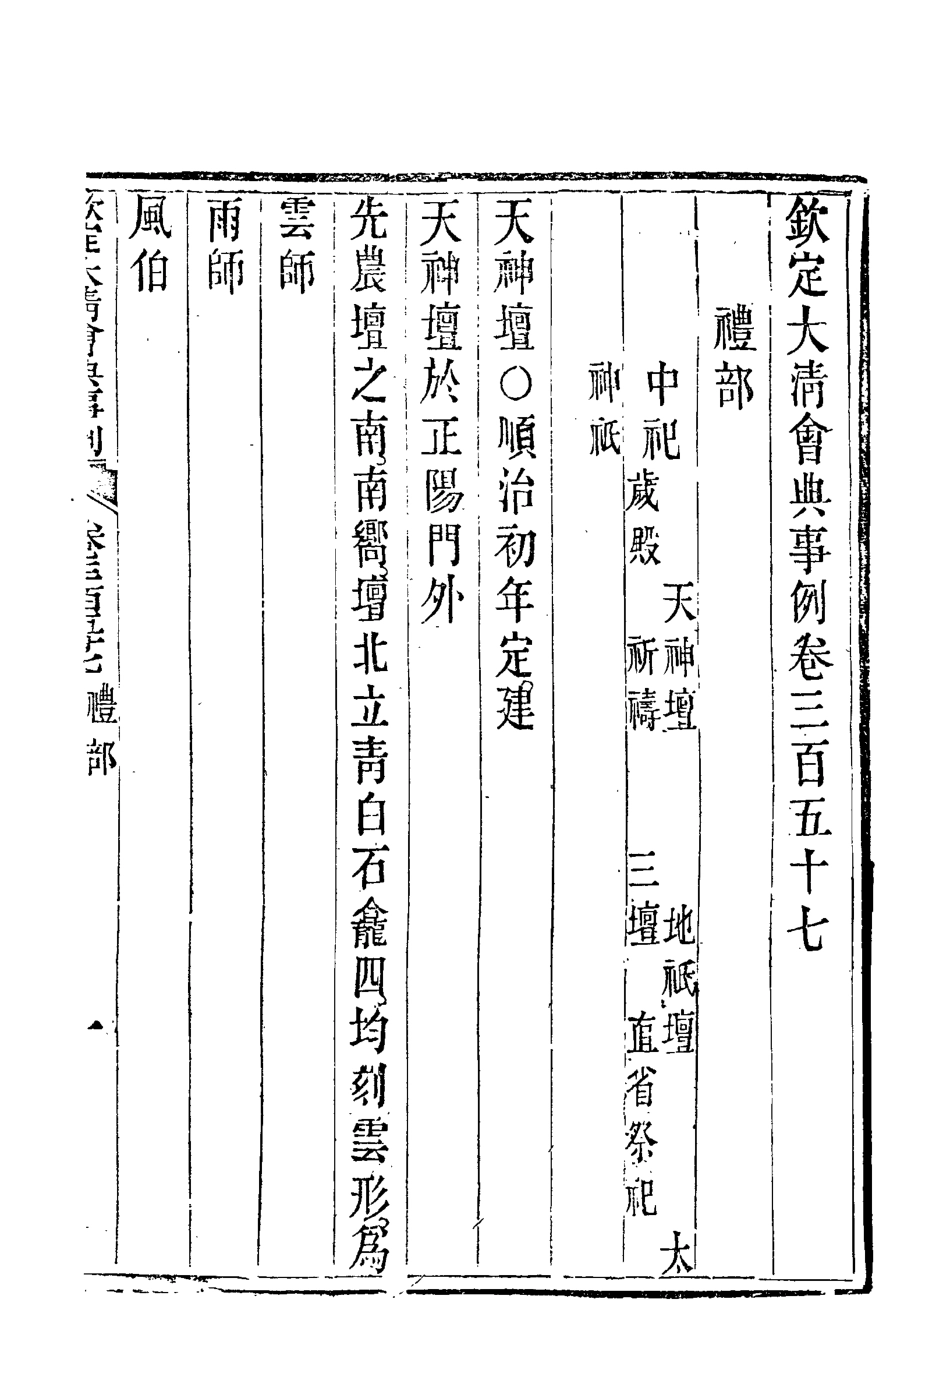 欽定大清會典事例卷三百五十七
禮部
中祀
天神壇　地祇壇　太
歲殿　祈禱　三壇　直省祭祀
神祇
天神壇○順治初年定。建
天神壇於正陽門外
先農壇之南。南嚮。壇北立青白石龕四。均刻雲形。爲
雲師
雨師
風伯
欽定大清會典事例　卷三百五十七　禮部　一